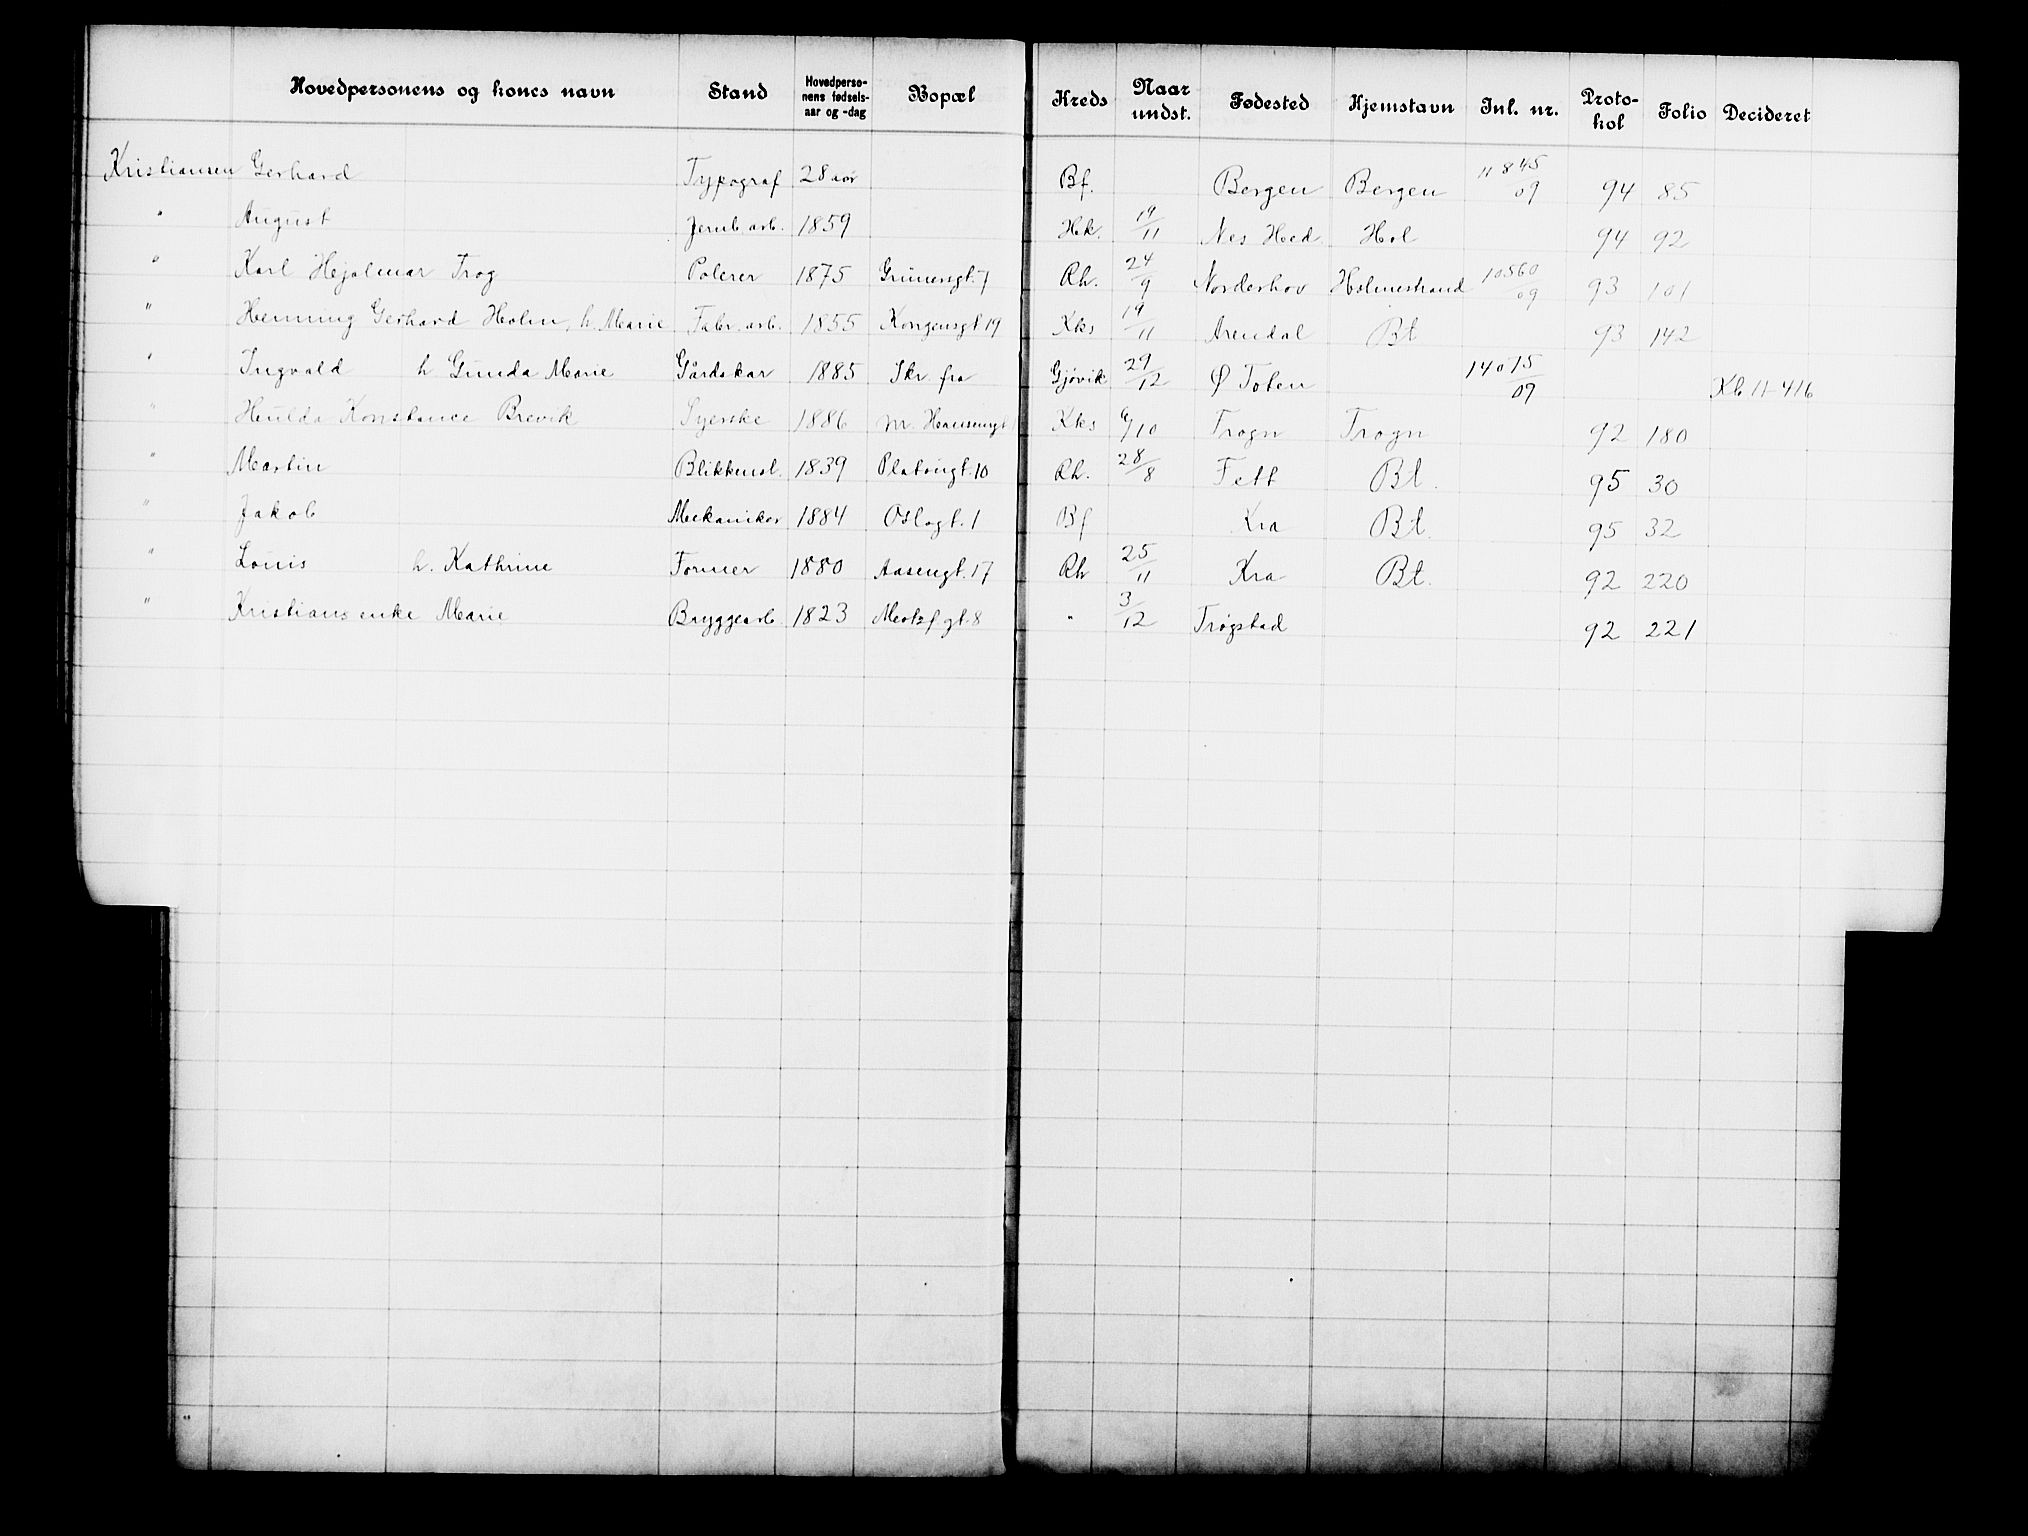 Hovedpersonens og kones navn Stand Hovedperso-nens fødsels-aar og -dag Bopæl Kreds Naar undst. Fødested Hjemstavn Inl. nr. Proto-kol Folio Decideret
Kristiansen Gerhard Typograf 28 aar Bf. Bergen Bergen 11845/09 94 85
" August Jernb. arb. 1859 Hk. 19/11 Nes Hed. Hol 94 92
" Karl Hjalmar Trog Polerer 1875 Grünersgt. 7 Rh. 24/9 Norderhov Holmestrand 10560/09 93 101
" Henning Gerhard Holm, h. Marie Fabr. arb. 1855 Kongensgt 19 Kks 19/11 Arendal Bt 93 142
" Ingvald h Gunda Marie Gårdskar 1885 Skr. fra Gjøvik 29/12 Ø Toten 14075/09 Kb 11-416
" Hulda Konstance Brevik Syerske 1886 M. Hansensgt Kks 6/10 Trogn Trogn 92 180
" Martin Blikkensl. 1839 Platousgt. 10 Rh. 28/8 Fett Bt. 95 30
" Jakob Mekaniker 1884 Oslogt. 1 Bf Kra Bt. 95 32
" Louis h. Kathrine Former 1880 Aasengt. 17 Rh 25/11 Kra Bt. 92 220
" Kristians enke Marie Bryggearb. 1823 Motzf gt. 8 " 3/12 Trøgstad 92 221